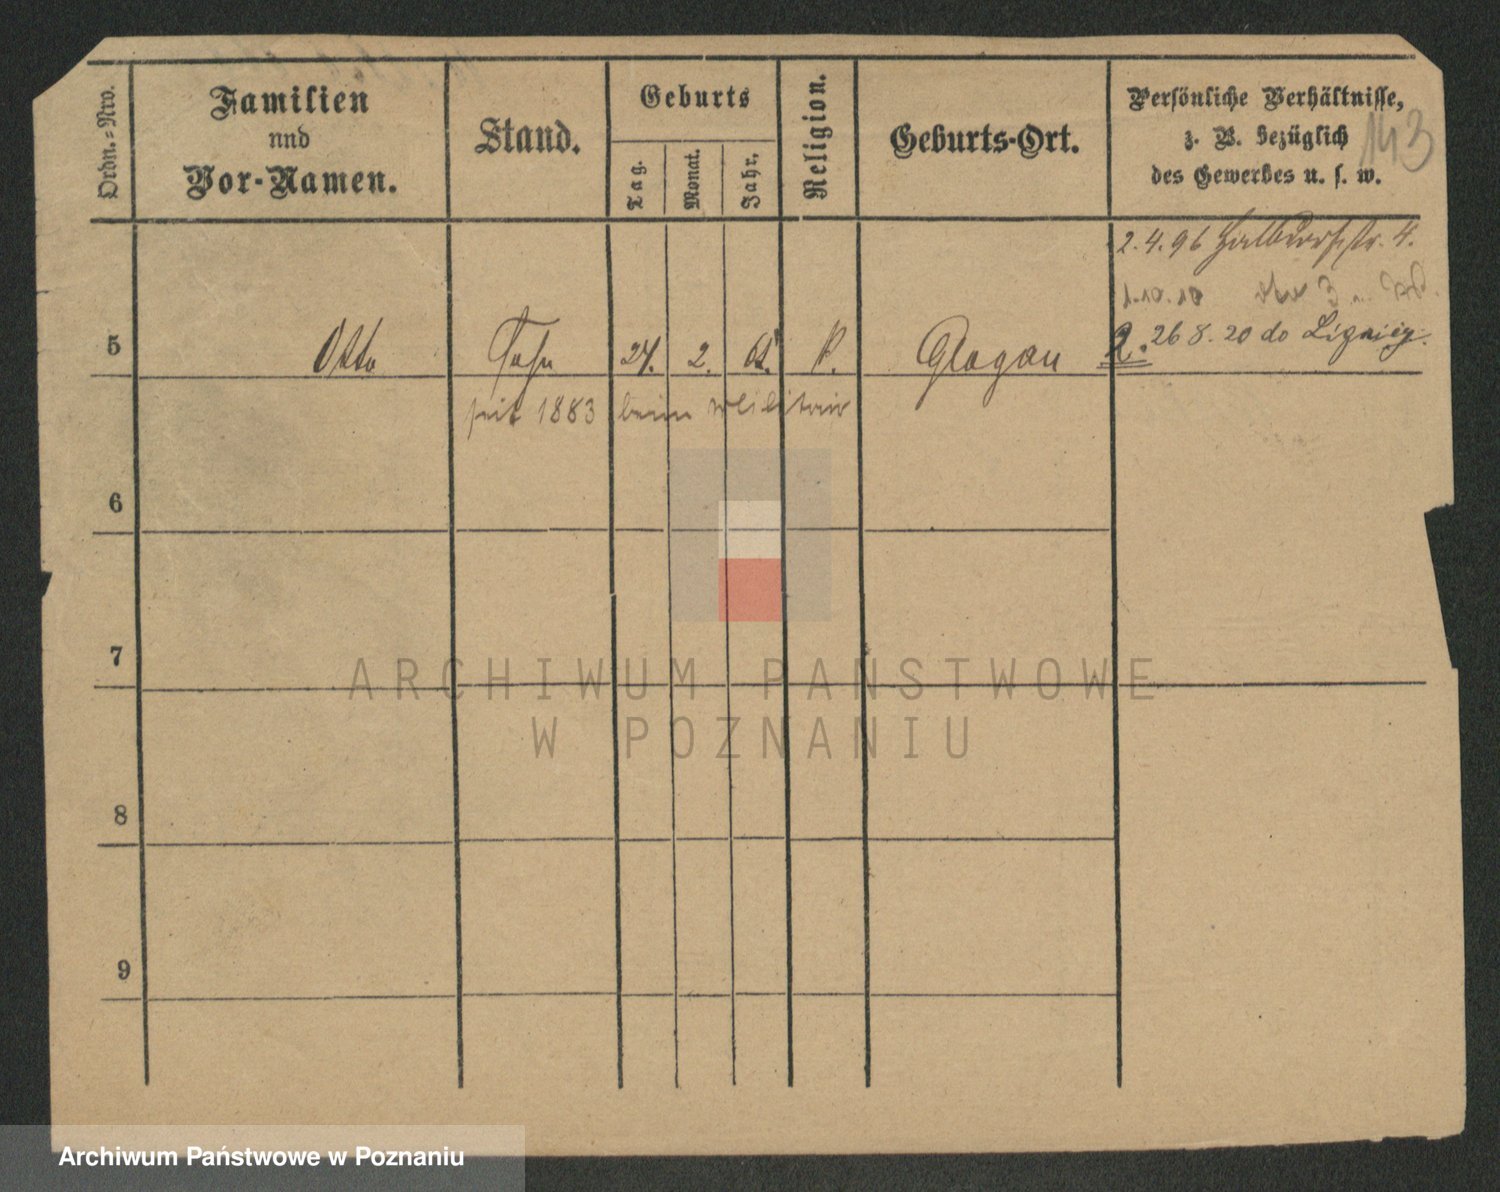 Ordn.=Nro.
Familien
und
Vor-Namen.
Stand.
Geburts
Tag.
Monat.
Jahr.
Religion.
Geburts-Ort.
Persönliche Verhältnisse,
z. B. bezüglich
des Gewerbes u. s. w.
143
2.4.96 str. 4.
1.10.10
5 Otto Sohn 24. 2. Glogau 26 8. 20 do Lignicy.
seit 1883 beim Militair
6
7
8
9
ARCHIWUM PAŃSTWOWE
W POZNANIU
Archiwum Państwowe w Poznaniu